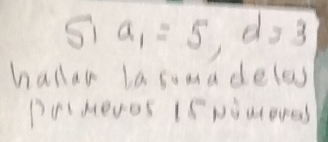 Si a₁ = 5, d = 3
hallar la suma de los
primeros 15 números